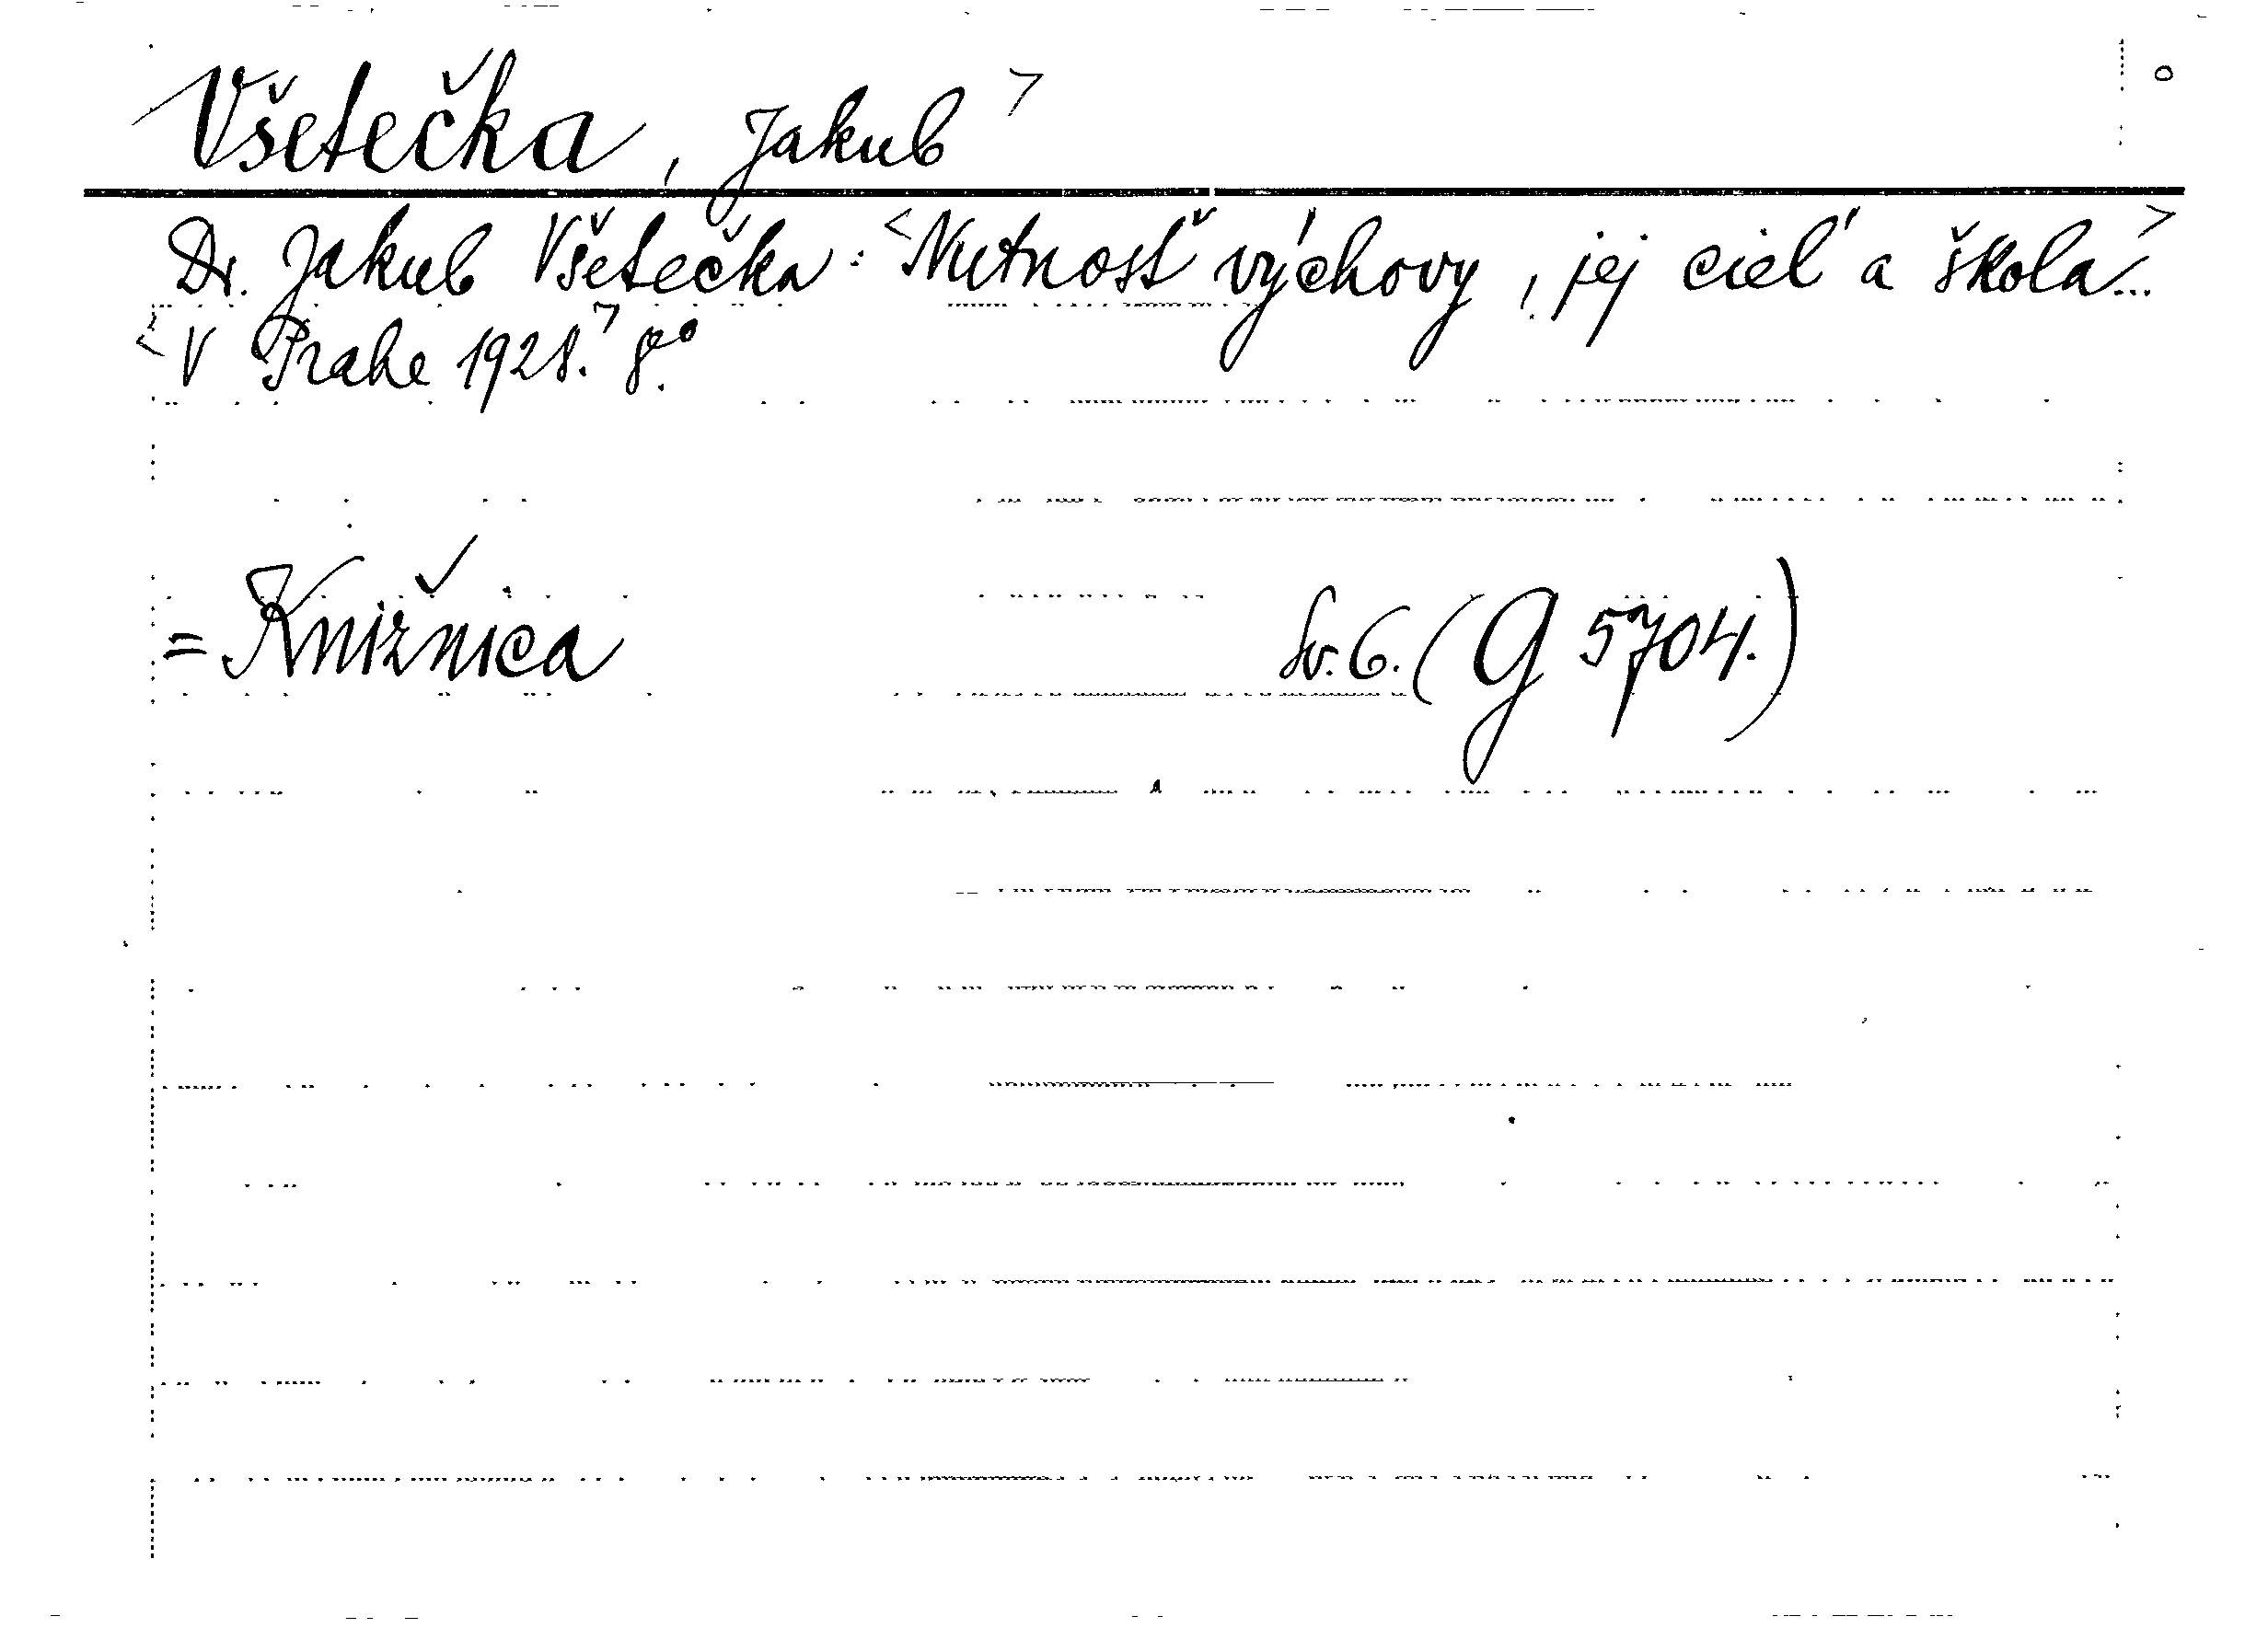 Všetečka, Jakub >
Dr. Jakub Všetečka: <Nutnosť výchovy, jej cieľ a škola...>
<V Prahe 1928.> 8°.
= Knižnica Sv. 6. (G 5704.)